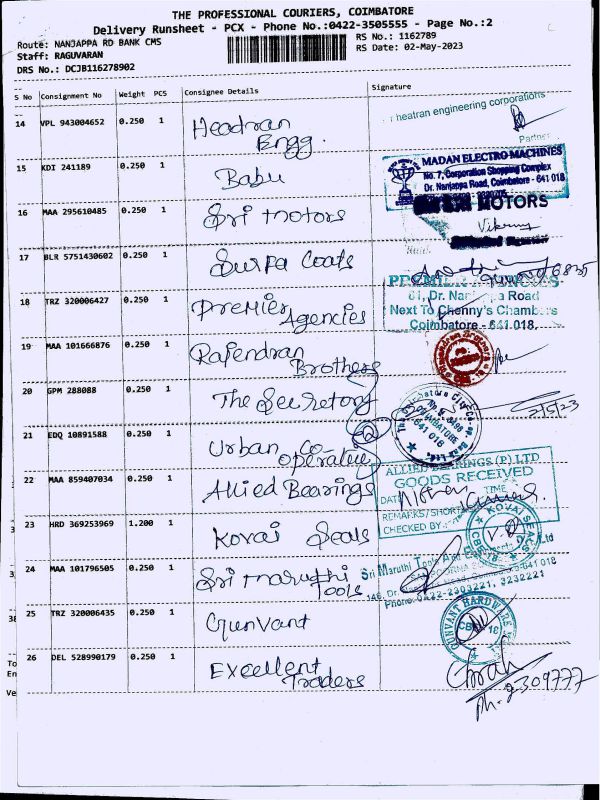 THE PROFESSIONAL COURIERS, COIMBATORE
Delivery Runsheet - PCX - Phone No.:0422-3505555 - Page No.:2
Route: NANJAPPA RD BANK CMS
RS No.: 1162789
Staff: RAGUVARAN
RS Date: 02-May-2023
DRS No.: DCJB116278902
S No Consignment No Weight PCS Consignee Details Signature
14 VPL 943004652 0.250 1 Headran Engg.
heatran engineering corporations
Partner
15 KDI 241189 0.250 1 Babu
MADAN ELECTRO MACHINES
No. 7, Corporation Shopping Complex
Dr. Nanjappa Road, Coimbatore - 641 018
16 MAA 295610485 0.250 1 Sri Motors
MOTORS
17 BLR 5751430602 0.250 1 Surpa Coats
18 TRZ 320006427 0.250 1 Premier Agencies
PREMIER AGENCIES
81, Dr. Nanjappa Road
Next To Chenny's Chambers
Coimbatore - 641 018.
19 MAA 101666876 0.250 1 Rajendran Brothers
20 GPM 288088 0.250 1 The Secretory
2/5/23
21 EDQ 10891588 0.250 1 Urban Co-operative
COIMBATORE
641 018
22 MAA 859407034 0.250 1 Allied Bearings
ALLIED BEARINGS (P) LTD
GOODS RECEIVED
DATE TIME
REMARKS/SHORT
CHECKED BY
23 HRD 369253969 1.200 1 Kovai Seals
KOVAI SEALS
24 MAA 101796505 0.250 1 Sri Maruthi Tools
Sri Maruthi Tools And
Phone: 0422-2303221, 3232221
25 TRZ 320006435 0.250 1 Gunvant
GUNVANT HARDWARE
26 DEL 528990179 0.250 1 Excellent Traders
Ph. 2309777